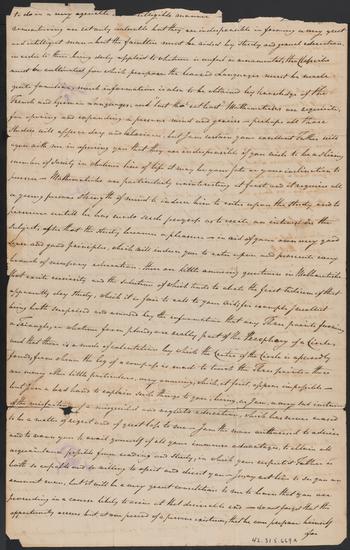 to do in a very agreeable intelligible manner
are not only valuable but they are indispensible in forming a very great
and intelligent man but the faculties must be aided by study and general education,
in order to their being duly applied to whatever is useful or ornamental, the
must be cultivated for which purpose the learned Languages must be made
quite familiar, much information is also to be obtained by knowledge of the
French and German Languages, and last tho' not least Mathematics are requisite,
for opening and expanding a persons mind and genius — perhaps all these
studies will appear dry and laborious, but I am certain your excellent Father will
join with me in assuring you that they are indispensible if you wish to be a shining
member of society in whatever line of life it may be your fate or your inclination to
pursue — Mathematics are particularly uninteresting at first and it requires all
a young persons strength of mind to induce him to enter upon the study and to
persevere untill he has made such progress as to create an interest in the
subject, after that the study becomes a pleasure — in aid of your own very good
sense and good principles, which will induce you to enter upon and persevere in every
branch of necessary education. there are little amusing questions in Mathematics
that excite curiosity and the solution of which tends to abate the first tedium of that
apparently dry study, which it is fair to call to your aid, for example, I recollect
being both surprised and amused by the information that any three points forming
a triangle, in whatever form placed, are really part of the Periphery of a Circle,
and that there is a mode of calculation by which the Centre of the Circle is exposed by
found, from whence the leg of a compass is made to touch the three points — there
are many other little particulars, very amusing, which at first appear impossible —
but I am a bad hand to explain such things to you, having, as I am, a very sad instance
of the misfortune of a misguided and neglected education, which has never ceased
to be a matter of regret and of great loss to me — I am the more authorised to advise
and to warn you to avail yourself of all your immense advantages, to obtain all
acquirements possible from reading and study, in which your respected Father is
both so capable and so willing to assist and direct you — I may not live to see you an
eminent man, but it will be a very great consolation to me to know that you are
proceeding in a course likely to arrive at that desireable end — do not forget that the
opportunity occurs but at one period of a persons existence, that he can prepare himself
for
42.315.669A